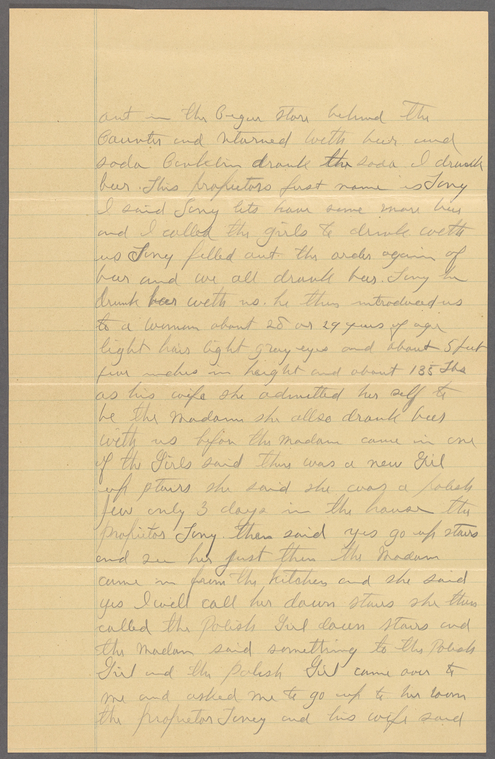 out in the Cigar Store behind the
Counter and returned with beer and
soda Conklin drank the soda I drank
beer. This proprietors first name is Tony
I said Tony lets have some more beer
and I called the girls to drink with
us Tony filled out the order again of
beer and we all drank beer. Tony he
drank beer with us. he then introduced us
to a woman about 28 or 29 years of age
light hair light gray eyes and about 5 feet
five inches in height and about 135 lbs
as his wife she admitted her self to
be the Madam she allso drank beer
with us before the Madam came in one
of the Girls said there was a new Girl
up stairs she said she was a polish
jew only 3 days in the house the
proprietor Tony then said yes go up stairs
and see her just then the Madam
came in from the kitchen and she said
yes I will call her down stairs she then
called the Polish Girl down stairs and
the Madam said something to the Polish
Girl and the polish Girl came over to
me and asked me to go up to her room
the proprietor Toney and his wife said